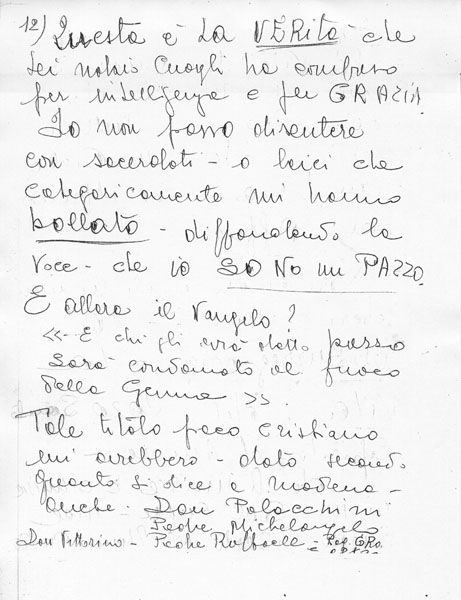 12) Questa è la VERità che
Lei nobis Cuoghi ha compreso
per intelligenza e per GRAZIA!
Io non posso discutere
con sacerdoti - o laici che
categoricamente mi hanno
bollato - diffondendo la
voce - che io SONO un PAZZO.
E allora il Vangelo?
<<- E chi gli avrà detto pazzo
sarà condannato al fuoco
della Geenna >>.
Tale titolo poco cristiano
mi avrebbero - dato secondo
quanto si dice a Modena -
anche. Don Polacchini
Padre Michelangelo
Don Vittorino - Padre Raffaele - Rag. GRo.